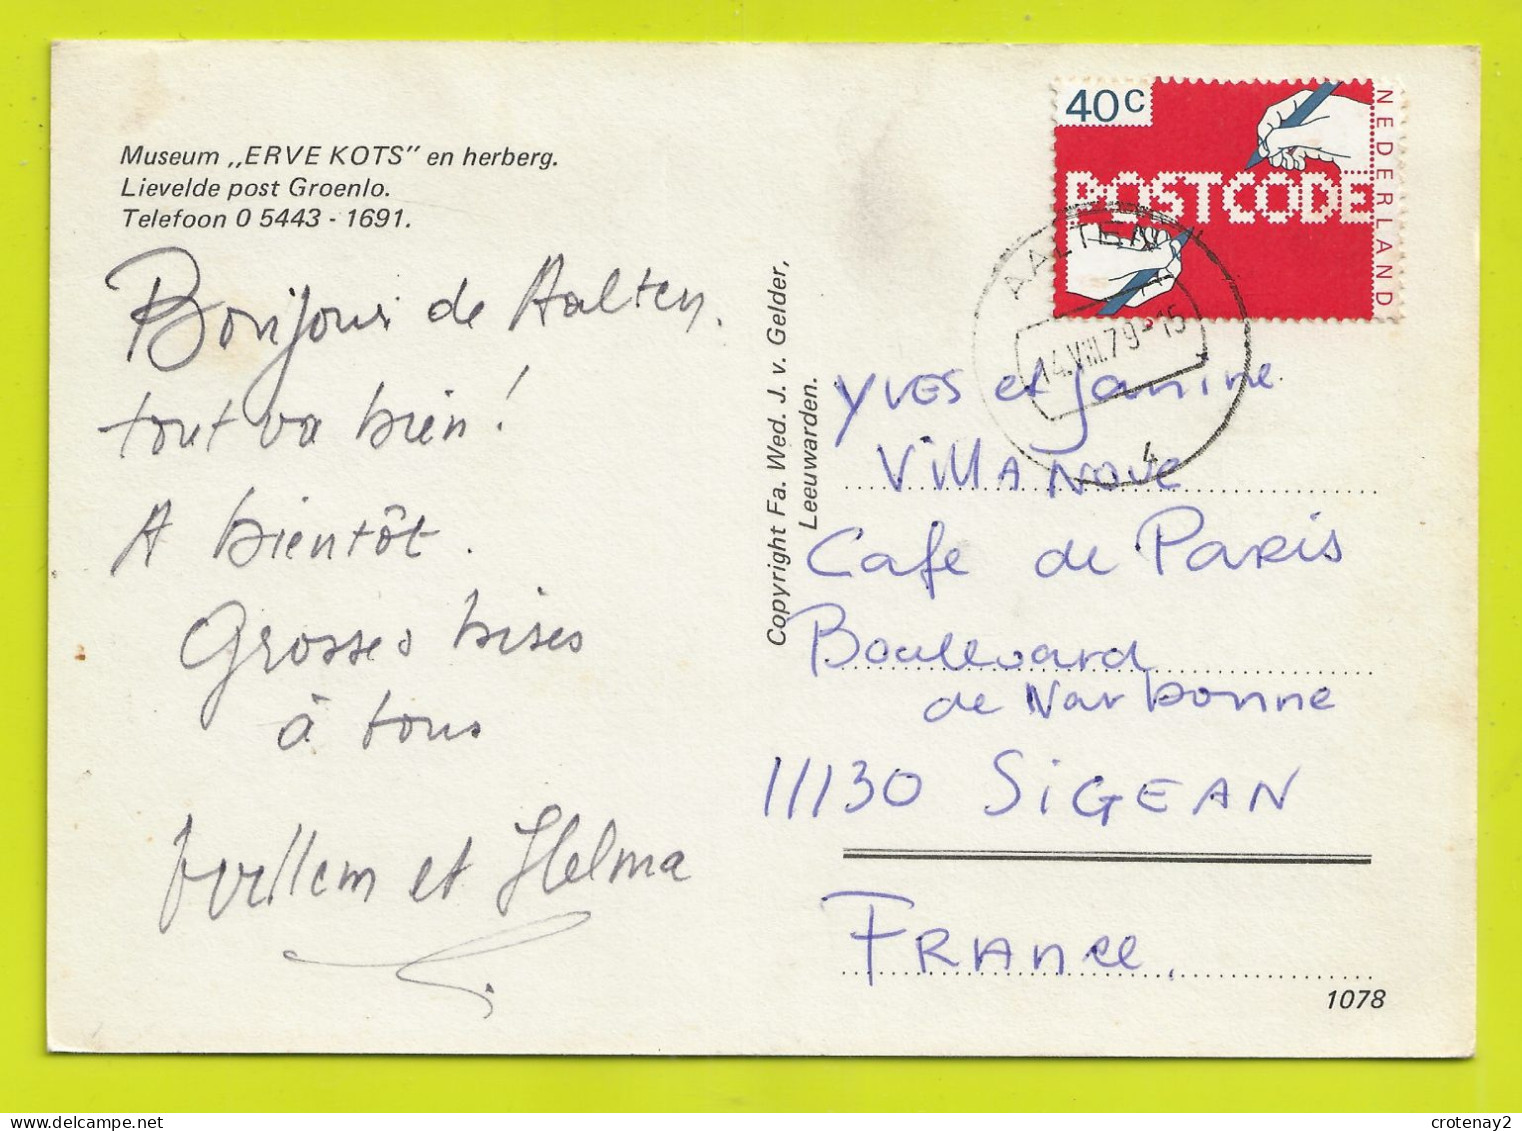 Museum „ERVE KOTS" en herberg.
Lievelde post Groenlo.
Telefoon 0 5443 - 1691.
Bonjour de Aalten.
tout va bien!
A bientôt.
Grosses bises
à tous
Willem et Helma
Copyright Fa. Wed. J. v. Gelder,
Leeuwarden.
40c
NEDERLAND
POSTCODE
AALTEN
14.VIII.79-15
4
YVES et Janine
VILLANOVE
Cafe de PARIS
Boulevard
de Narbonne
11130 SIGEAN
FRANCE.
1078
crotenay2